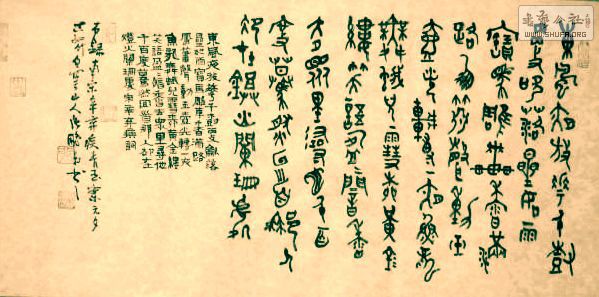 東風夜放花千樹
更吹落星如雨
寶馬雕車香滿
路鳳簫聲動玉
壺光轉一夜魚龍
舞蛾兒雪柳黃金
縷笑語盈盈暗香
去眾里尋他千百
度驀然回首那人
却在燈火闌珊處
東風夜放花千樹更吹落
星如雨寶馬雕車香滿路
鳳簫聲動玉壺光轉一夜
魚龍舞蛾兒雪柳黃金縷
笑語盈盈暗香去眾里尋他
千百度驀然回首那人却在
燈火闌珊處宋辛棄疾詞
右錄南宋辛棄疾青玉案元夕
書藝公社
WWW.SHUFA.ORG